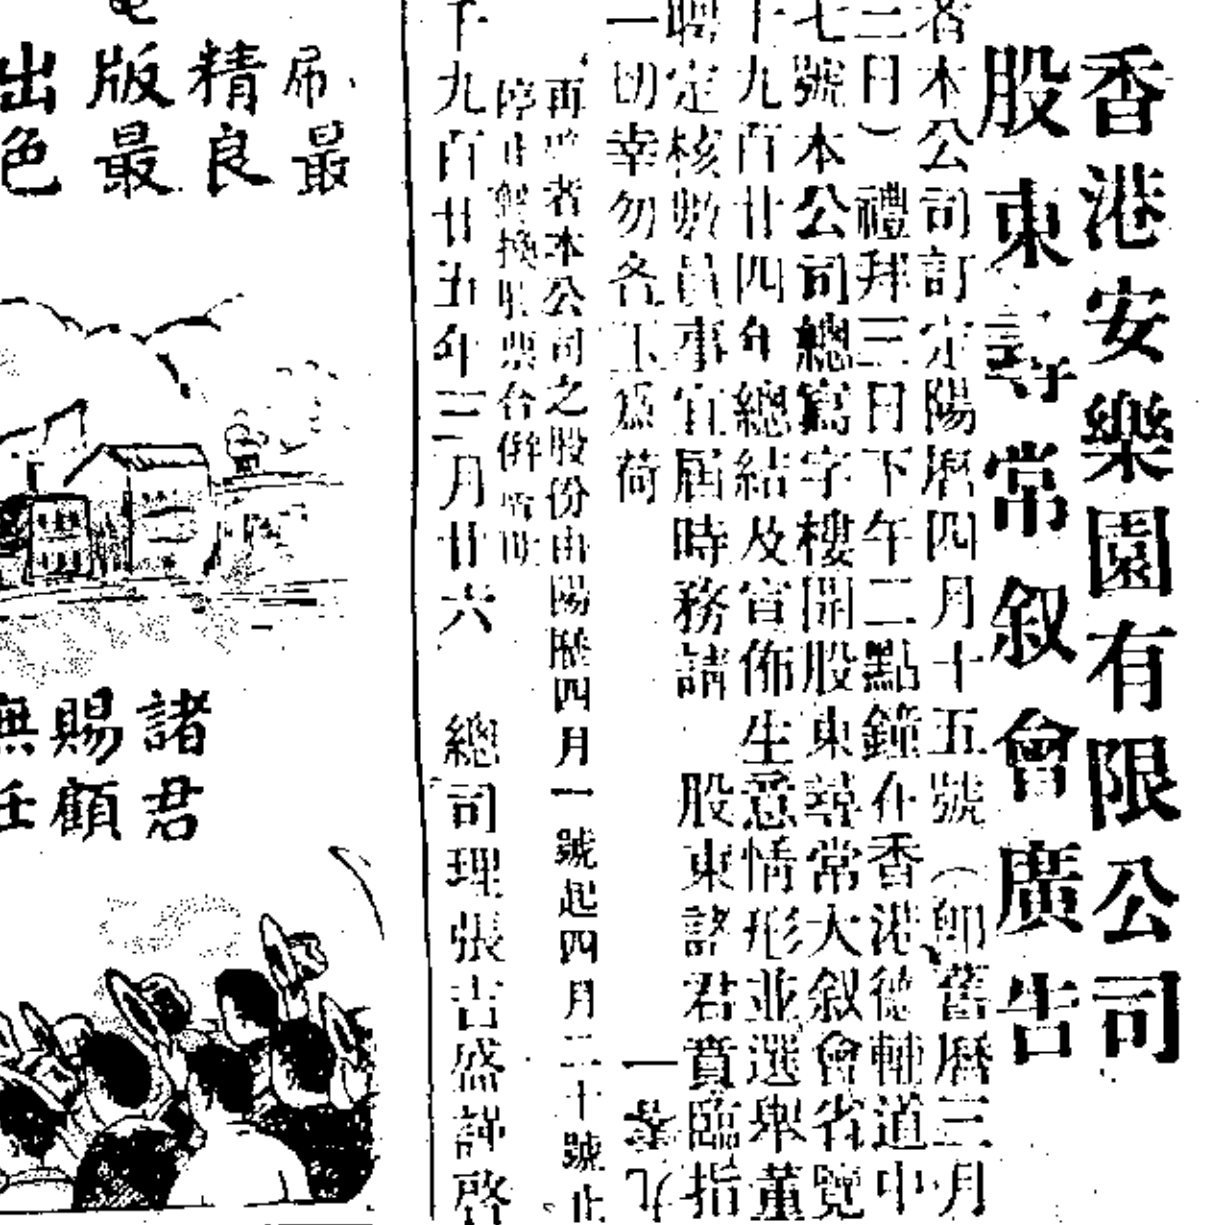 香港安樂園有限公司
股東尋常叙會廣告
者本公司訂定陽曆四月十五號（即舊曆三月
三日）禮拜三日下午二點鐘在香港德輔道中
七號本公司總寫字樓開股東尋常大叙會省覽
十九百廿四年總結及宣佈生意情形並選舉董
聘定核數員事宜屆時務請 股東諸君賁臨指
一切幸勿各玉為荷
再 者本公司之股份由陽歷四月一號起四月二十號止
停止轉換
千九百廿五年三月廿六 總司理張吉盛謹啓
帋最
精良
版最
出色
諸君
賜顧
無任